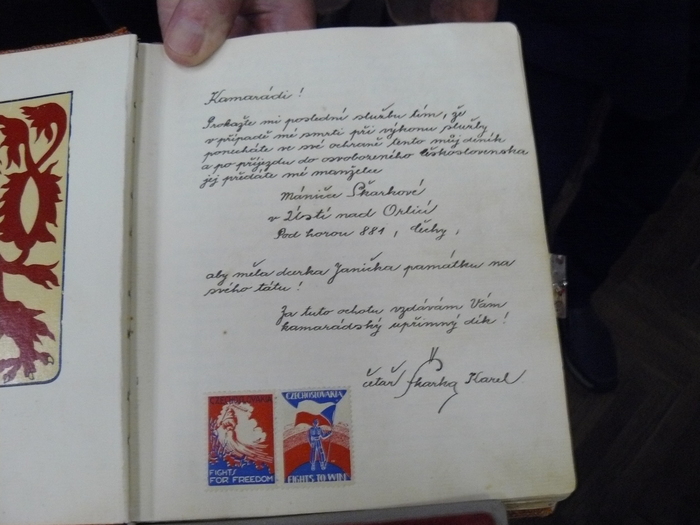 Kamarádi !
Prokažte mi poslední službu tím, že
v případě mé smrti při výkonu služby
ponecháte ve své ochraně tento můj deník
a po příjezdu do osvobozeného Československa
jej předáte mé manželce
Mániče Škarkové
v Ústí nad Orlicí
Pod horou 881, Čechy,
aby měla dcerka Janička památku na
svého tátu !
Za tuto ochotu vzdávám Vám
kamarádský upřímný dík !
četař Škarka Karel
CZECHOSLOVAKIA
FIGHTS
FOR FREEDOM
CZECHOSLOVAKIA
FIGHTS TO WIN